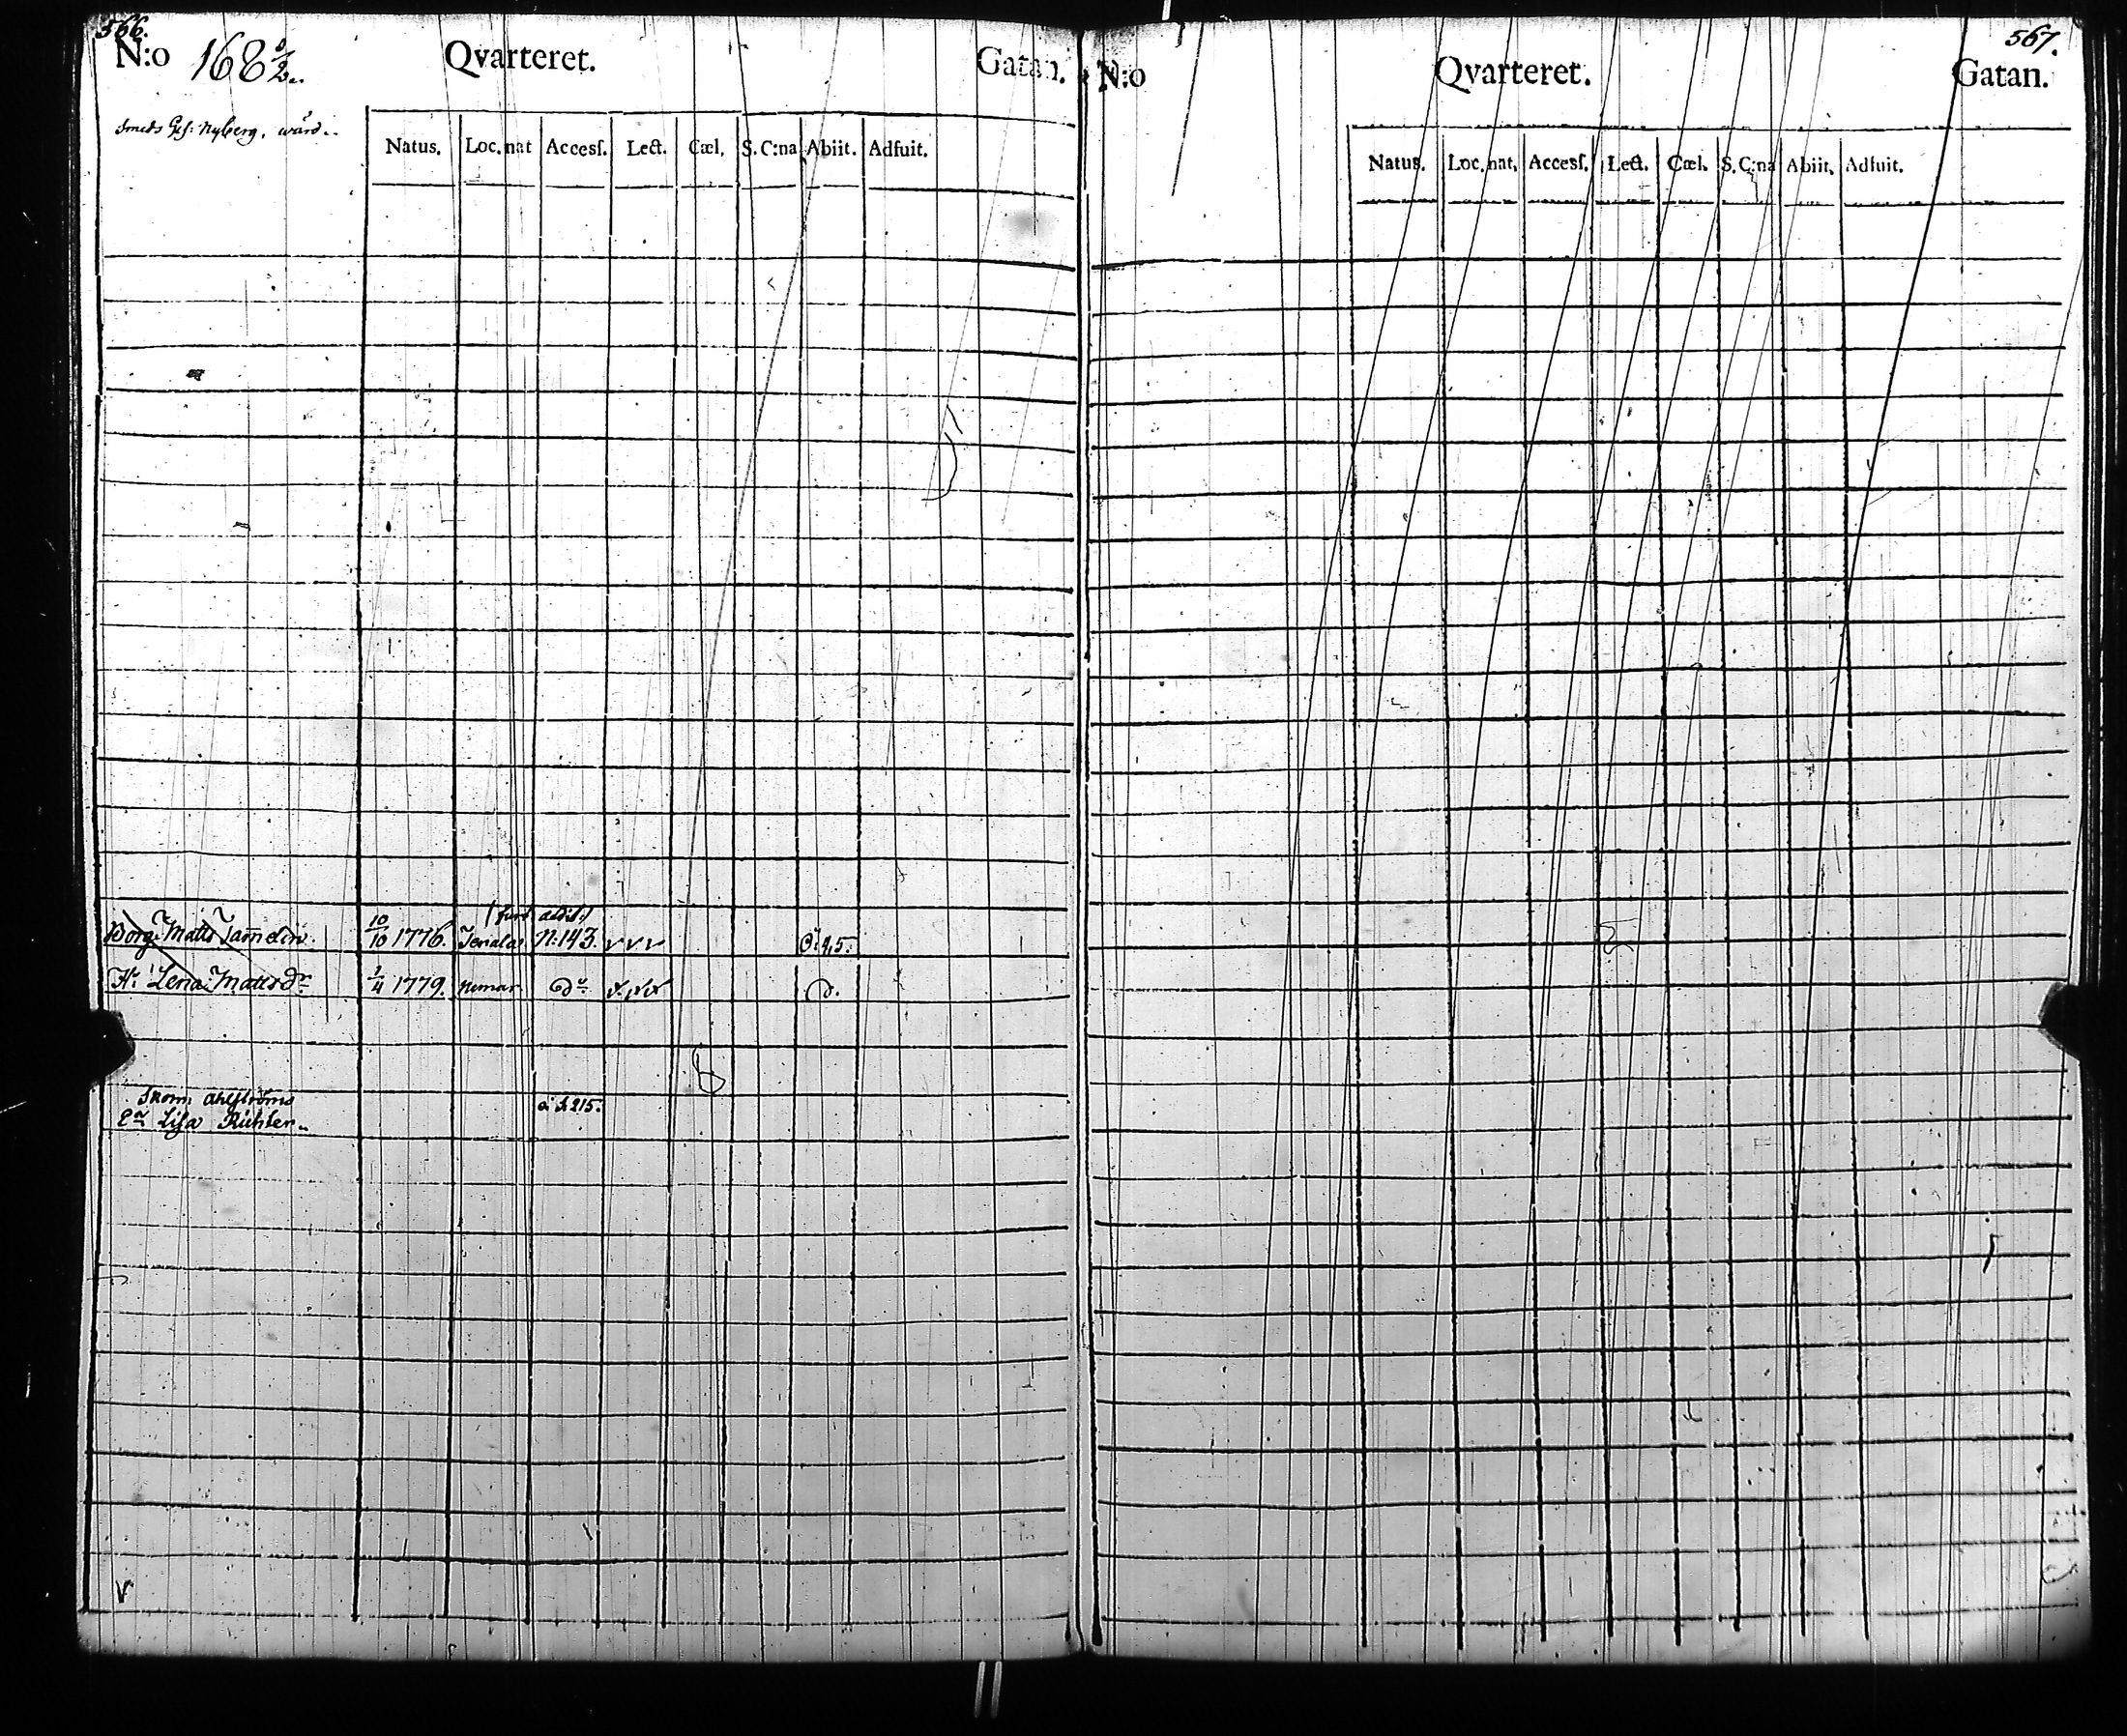 566.
N:o 168 1/2. Qvarteret. Gatan.
Smeds Ges: Nyberg, wärd..
Natus. Loc. nat Access. Lect. Cœl. S. C:na Abiit. Adfuit.
Borg. Matts Tam̄elin. 10/10 1776. N:143. v v v
H. Lena Mattsdr 1/4 1779. Nemar D:o D.
Skom. Ahlströms
E:a Lisa Richter.. 215.
567.
N:o Qvarteret. Gatan.
Natus. Loc. nat. Access. Lect. Cœl. S. C:na Abiit. Adfuit.